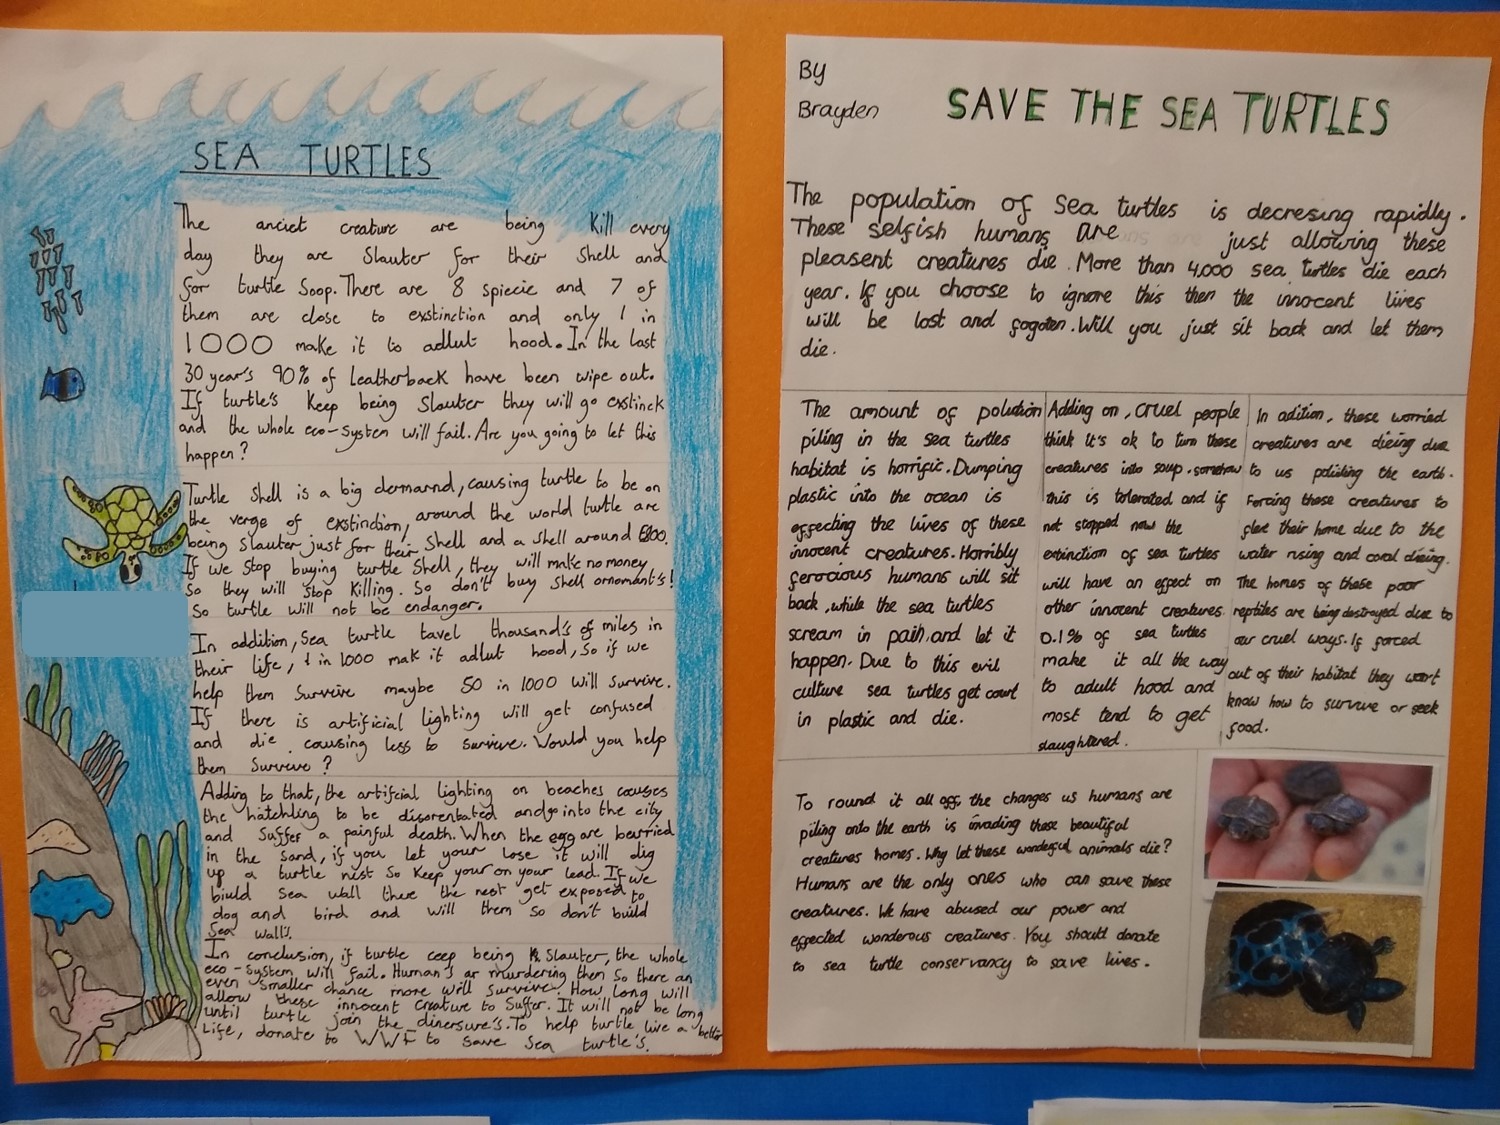 SEA TURTLES
The anciet creature are being Kill every
day they are Slauter for their Shell and
for turtle Soop. There are 8 spiecie and 7 of
them are close to exstinction and only 1 in
1000 make it to adlut hood. In the last
30 year's 90% of Leatherback have been wipe out.
If turtle's Keep being Slauter they will go exstinck
and the whole eco-System will fail. Are you going to let this
happen?
Turtle Shell is a big demarnd, causing turtle to be on
the verge of exstinction, around the world turtle are
being Slauter just for their Shell and a Shell around
If we Stop buying turtle Shell, they will make no money,
So they will Stop Killing. So don't buy Shell ornomant's!
So turtle will not be endanger.
In addition, Sea turtle tavel thousand's of miles in
their life, 1 in 1000 mak it adlut hood, So if we
help them Survive maybe 50 in 1000 will Survive.
If there is artificial lighting will get confused
and die. cawsing less to Survive. Would you help
them Survive?
Adding to that, the artifcial lighting on beaches causes
the hatchling to be disorentated and go into the city
and Suffer a painful death. When the egg are barried
in the Sand, if you let your lose it will dig
up a turtle nest So Keep your on your lead. If we
biuld Sea wall there the nest get exposed to
dog and bird and will them So don't build
Sea wall's.
In conclusion, if turtle ceep being Slauter, the whole
eco-System will fail. Human's ar murdering them So there an
even smaller chance more will Survive. How long will
allow these innocent Creature to Suffer. It will not be long
until turtle join the dinersure's. To help turtle live a better
Life, donate to WWF to save Sea turtle's.
By
Brayden
SAVE THE SEA TURTLES
The population of sea turtles is decresing rapidly.
These selfish humans are just allowing these
pleasent creatures die. More than 4,000 sea turtles die each
year. If you choose to ignore this then the innocent lives
will be lost and fogoten. Will you just sit back and let them
die.
The amount of polution
piling in the sea turtles
habitat is horrific. Dumping
plastic into the ocean is
effecting the lives of these
innocent creatures. Horribly
ferocious humans will sit
back, while the sea turtles
scream in pain, and let it
happen. Due to this evil
culture sea turtles get cawt
in plastic and die.
Adding on, cruel people
think it's ok to turn these
creatures into soup. somehow
this is tolerated and if
not stopped now the
extinction of sea turtles
will have an effect on
other innocent creatures.
0.1% of sea turtles
make it all the way
to adult hood and
most tend to get
slaughtered.
In adition, these worried
creatures are dieing due
to us poluting the earth.
Forcing these creatures to
flee their home due to the
water rising and coral dieing.
The homes of these poor
reptiles are being destroyed due to
our cruel ways. If forced
out of their habitat they wont
know how to survive or seek
food.
To round it all off, the changes us humans are
piling onto the earth is invading these beautiful
creatures homes. Why let these wonderful animals die?
Humans are the only ones who can save these
creatures. We have abused our power and
effected wonderous creatures. You should donate
to sea turtle conservancy to save lives.